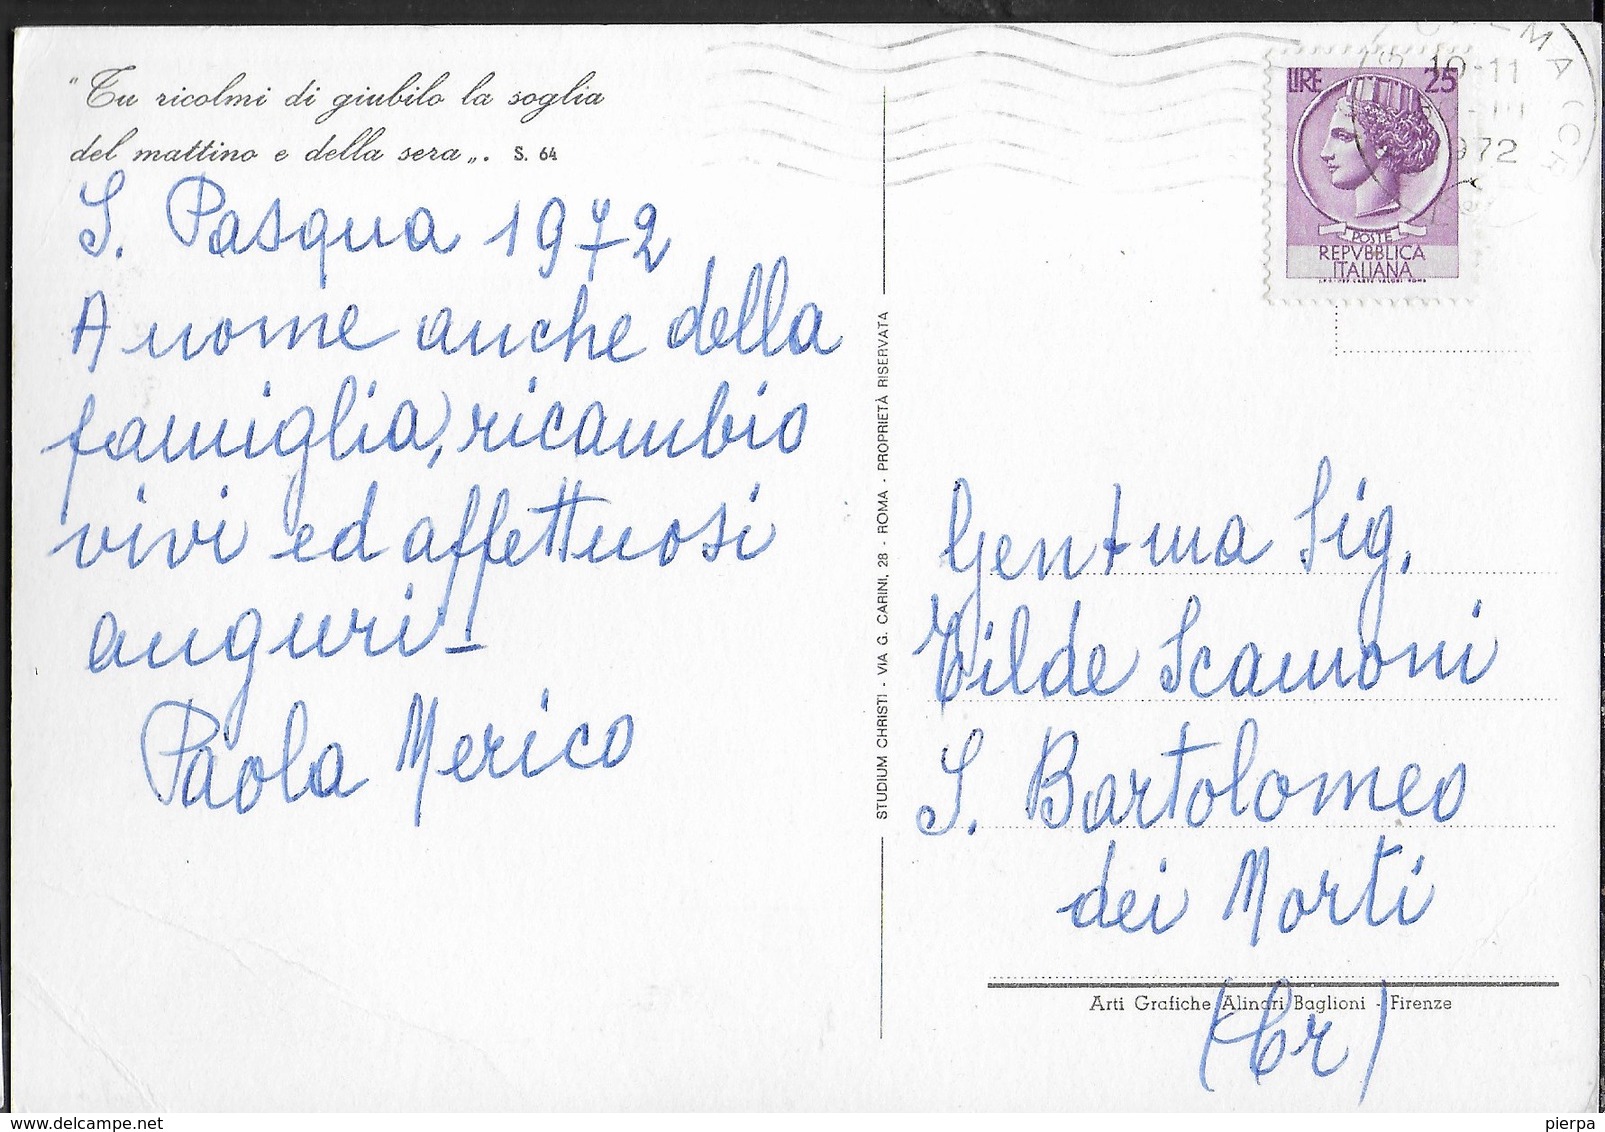 "Tu ricolmi di giubilo la soglia
del mattino e della sera„. S. 64
S. Pasqua 1972
A nome anche della
famiglia, ricambio
vivi ed affettuosi
auguri!
Paola Merico
STUDIUM CHRISTI - VIA G. CARINI, 28 - ROMA - PROPRIETÀ RISERVATA
LIRE 25
POSTE
REPVBBLICA
ITALIANA
10-11
1972
Gent.ma Sig.
Tilde Scamoni
S. Bartolomeo
dei Morti
Arti Grafiche Alinari Baglioni - Firenze
(Cr)
pierpa